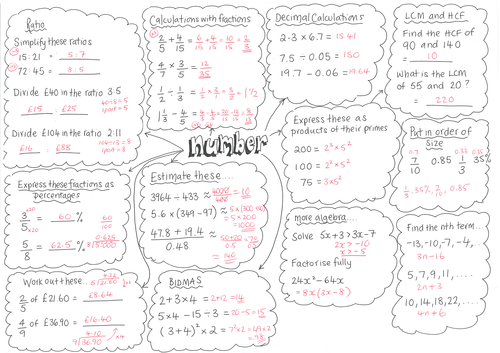 Ratio
Simplify these ratios
15:21 = 5:7
72:45 = 8:5
Divide £40 in the ratio 3:5
£15 : £25
40÷8=5
1part=5
Divide £104 in the ratio 2:11
£16 : £88
104÷13=8
1part=8
Calculations with fractions
2/5 + 4/15 = 6/15 + 4/15 = 10/15 = 2/3
4/7 × 3/5 = 12/35
1/2 ÷ 1/3 = 1/2 × 3/1 = 3/2 = 1 1/2
Decimal Calculations
2.3 × 6.7 = 15.41
7.5 ÷ 0.05 = 150
19.7 - 0.06 = 19.64
LCM and HCF
Find the HCF of
90 and 140
= 10
What is the LCM
of 55 and 20?
= 220
number
Express these as
products of their primes
200 = 2³×5²
100 = 2²×5²
75 = 3×5²
Put in order of
Size
7/10 0.85 1/3 35%
1/3, 35%, 7/10, 0.85
Express these fractions as
percentages
3/5 = 60 % 60/100
5/8 = 62.5 %
Estimate these....
3964 ÷ 433 ≈ 4000/400 = 10
5.6 × (349-97)
= 5×200
= 1000
47.8 + 19.4 / 0.48
= 140
more algebra....
Solve 5x+3>3x-7
2x>-10
x>-5
Factorise fully
24x²-64x
= 8x(3x-8)
Find the nth term...
-13,-10,-7,-4,..
3n-16
5,7,9,11,....
2n+3
10,14,18,22,....
4n+6
Work out these...
2/5 of £21.60 = £8.64
4/9 of £36.90 = £16.40
BIDMAS
2+3×4 = 2+12=14
5×4-15÷3 = 20-5=15
(3+4)²×2 = 7²×2=49×2
=98